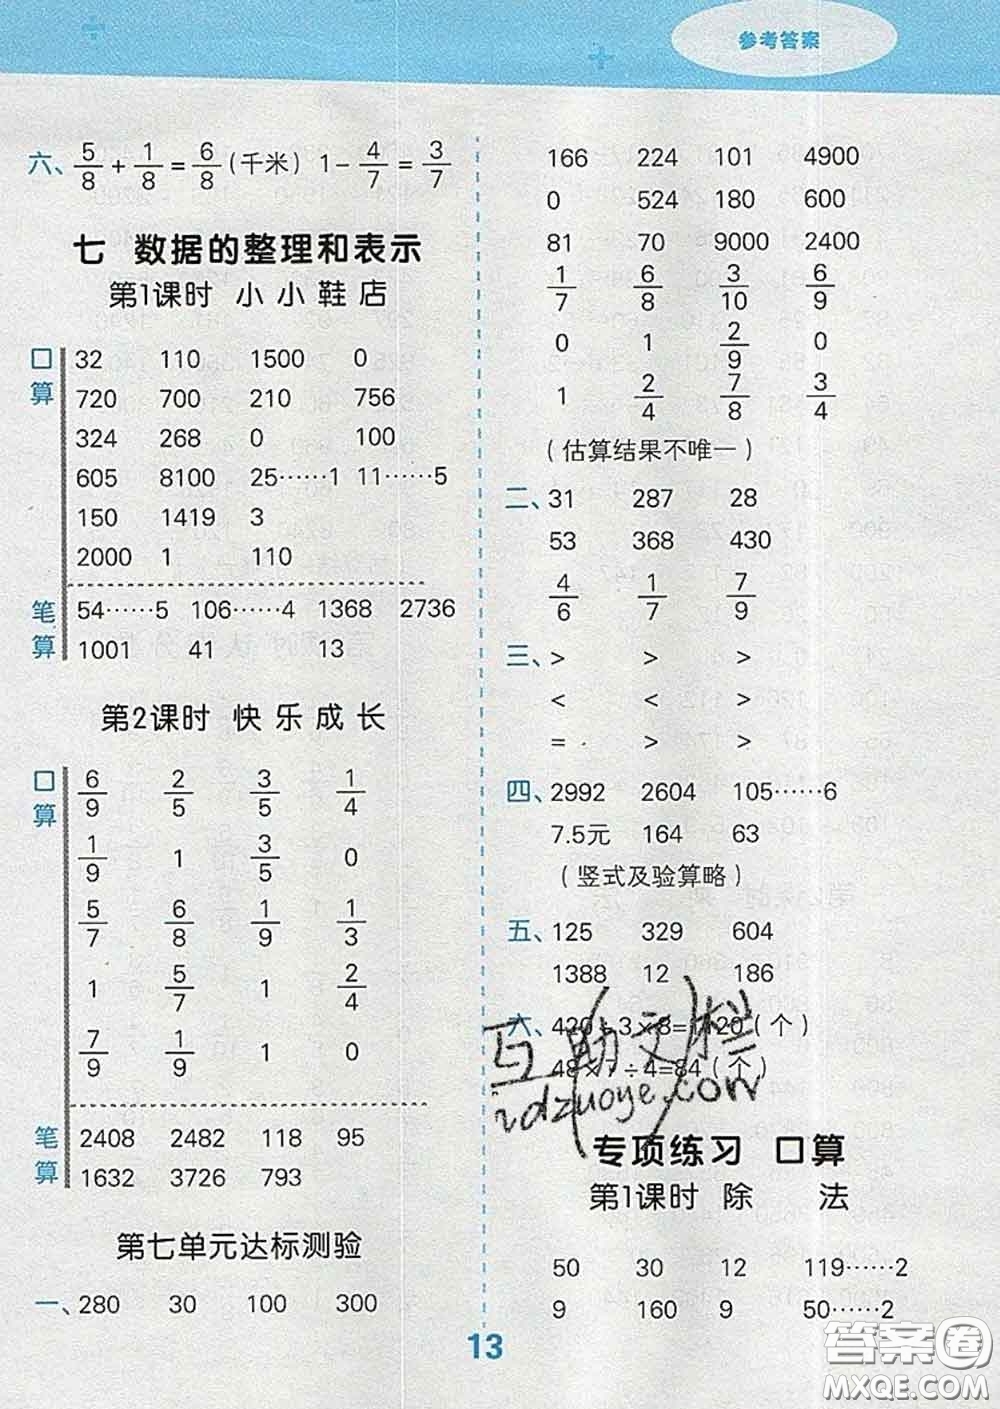 参考答案
六、5/8 + 1/8 = 6/8 (千米) 1 - 4/7 = 3/7
七 数据的整理和表示
第1课时 小小鞋店
口算
32 110 1500 0
720 700 210 756
324 268 0 100
605 8100 25……1 11……5
150 1419 3
2000 1 110
笔算
54……5 106……4 1368 2736
1001 41 13
第2课时 快乐成长
口算
6/9 2/5 3/5 1/4
1/9 1 3/5 0
5/7 6/8 1/9 1/3
1 5/7 1 2/4
7/9 1/9 1 0
笔算
2408 2482 118 95
1632 3726 793
第七单元达标测验
一、280 30 100 300
166 224 101 4900
0 524 180 600
81 70 9000 2400
1/7 6/8 3/10 6/9
0 1 2/9 0
1 2/4 7/8 3/4
(估算结果不唯一)
二、31 287 28
53 368 430
4/6 1/7 7/9
三、> > >
< < <
= > >
四、2992 2604 105……6
7.5元 164 63
(竖式及验算略)
五、125 329 604
1388 12 186
六、420÷3×8=1120(个)
48×7÷4=84(个)
互助文栏
zdzuoye.com
专项练习 口算
第1课时 除 法
50 30 12 119……2
9 160 9 50……2
13
答案圈
MXQE.COM